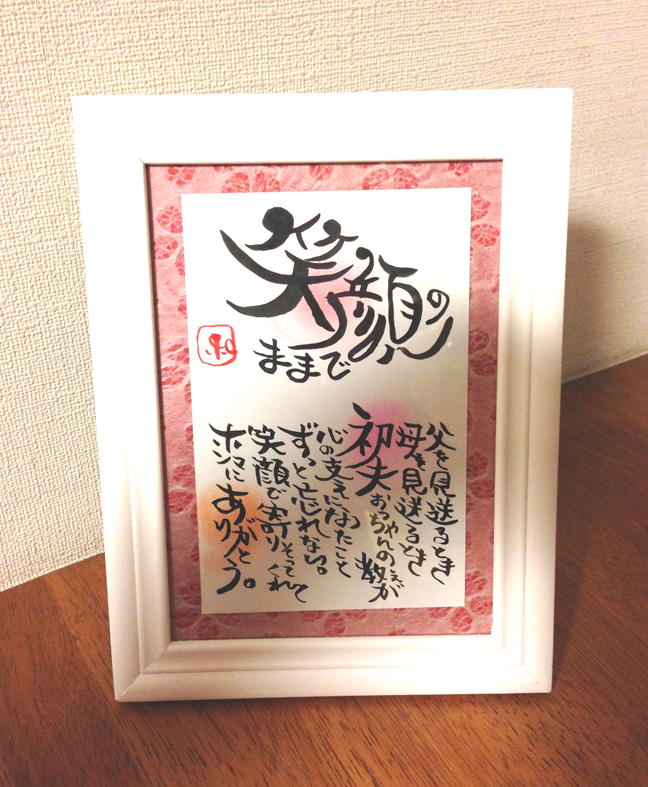 笑顔の
ままで
父を見送るとき
母を見送るとき
初夫おっちゃんの
心の支えになったこと
ずっと忘れない。
笑顔で寄りそってくれて
ホンマにありがとう。